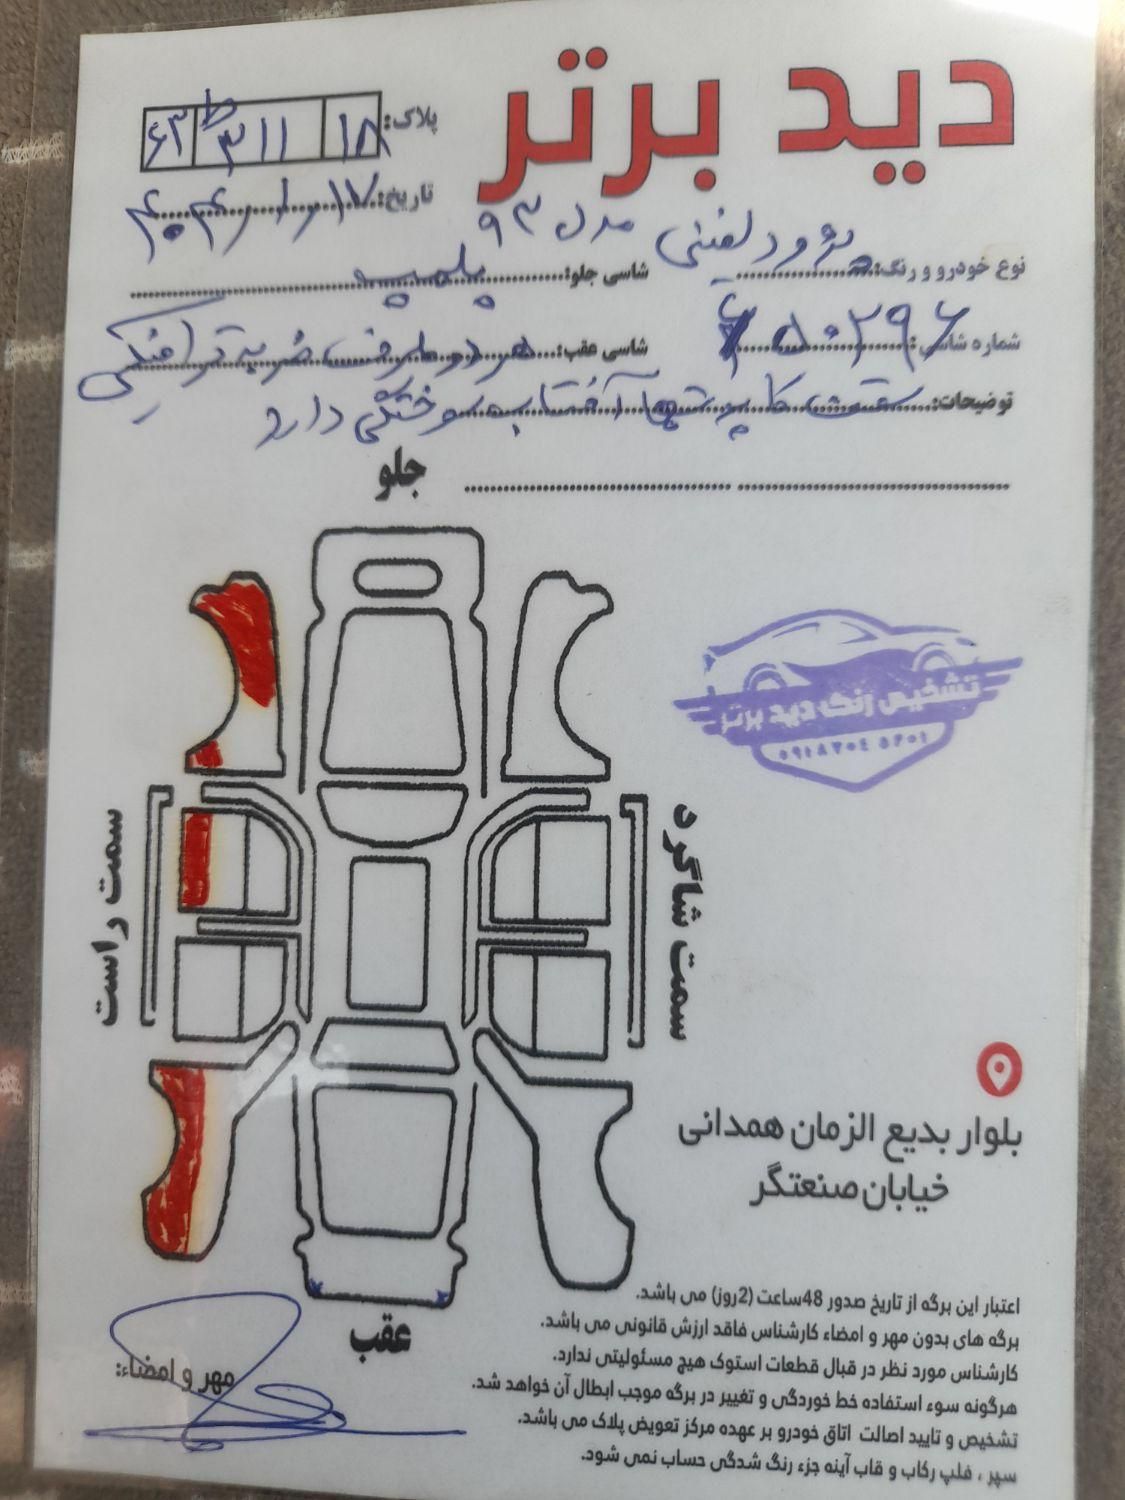 دید برتر
پلاک: ۱۸ ۳۱۱ ط ۶۳
تاریخ: ۱۷ / ۱ / ۴۰۴
نوع خودرو و رنگ: پژو دلفینی مدل ۹۳
شاسی جلو: پلمپ
شماره شاسی:
شاسی عقب: هر دو طرف ضربه ترافیکی
توضیحات: سقف کاپوتها آفتاب سوختگی دارد
جلو
تشخیص رنگ دید برتر
سمت راست
سمت شاگرد
بلوار بدیع الزمان همدانی
خیابان صنعتگر
عقب
مهر و امضاء:
اعتبار این برگه از تاریخ صدور 48ساعت (2روز) می باشد.
برگه های بدون مهر و امضاء کارشناس فاقد ارزش قانونی می باشد.
کارشناس مورد نظر در قبال قطعات استوک هیچ مسئولیتی ندارد.
هرگونه سوء استفاده خط خوردگی و تغییر در برگه موجب ابطال آن خواهد شد.
تشخیص و تایید اصالت اتاق خودرو بر عهده مرکز تعویض پلاک می باشد.
سپر ، فلپ رکاب و قاب آینه جزء رنگ شدگی حساب نمی شود.